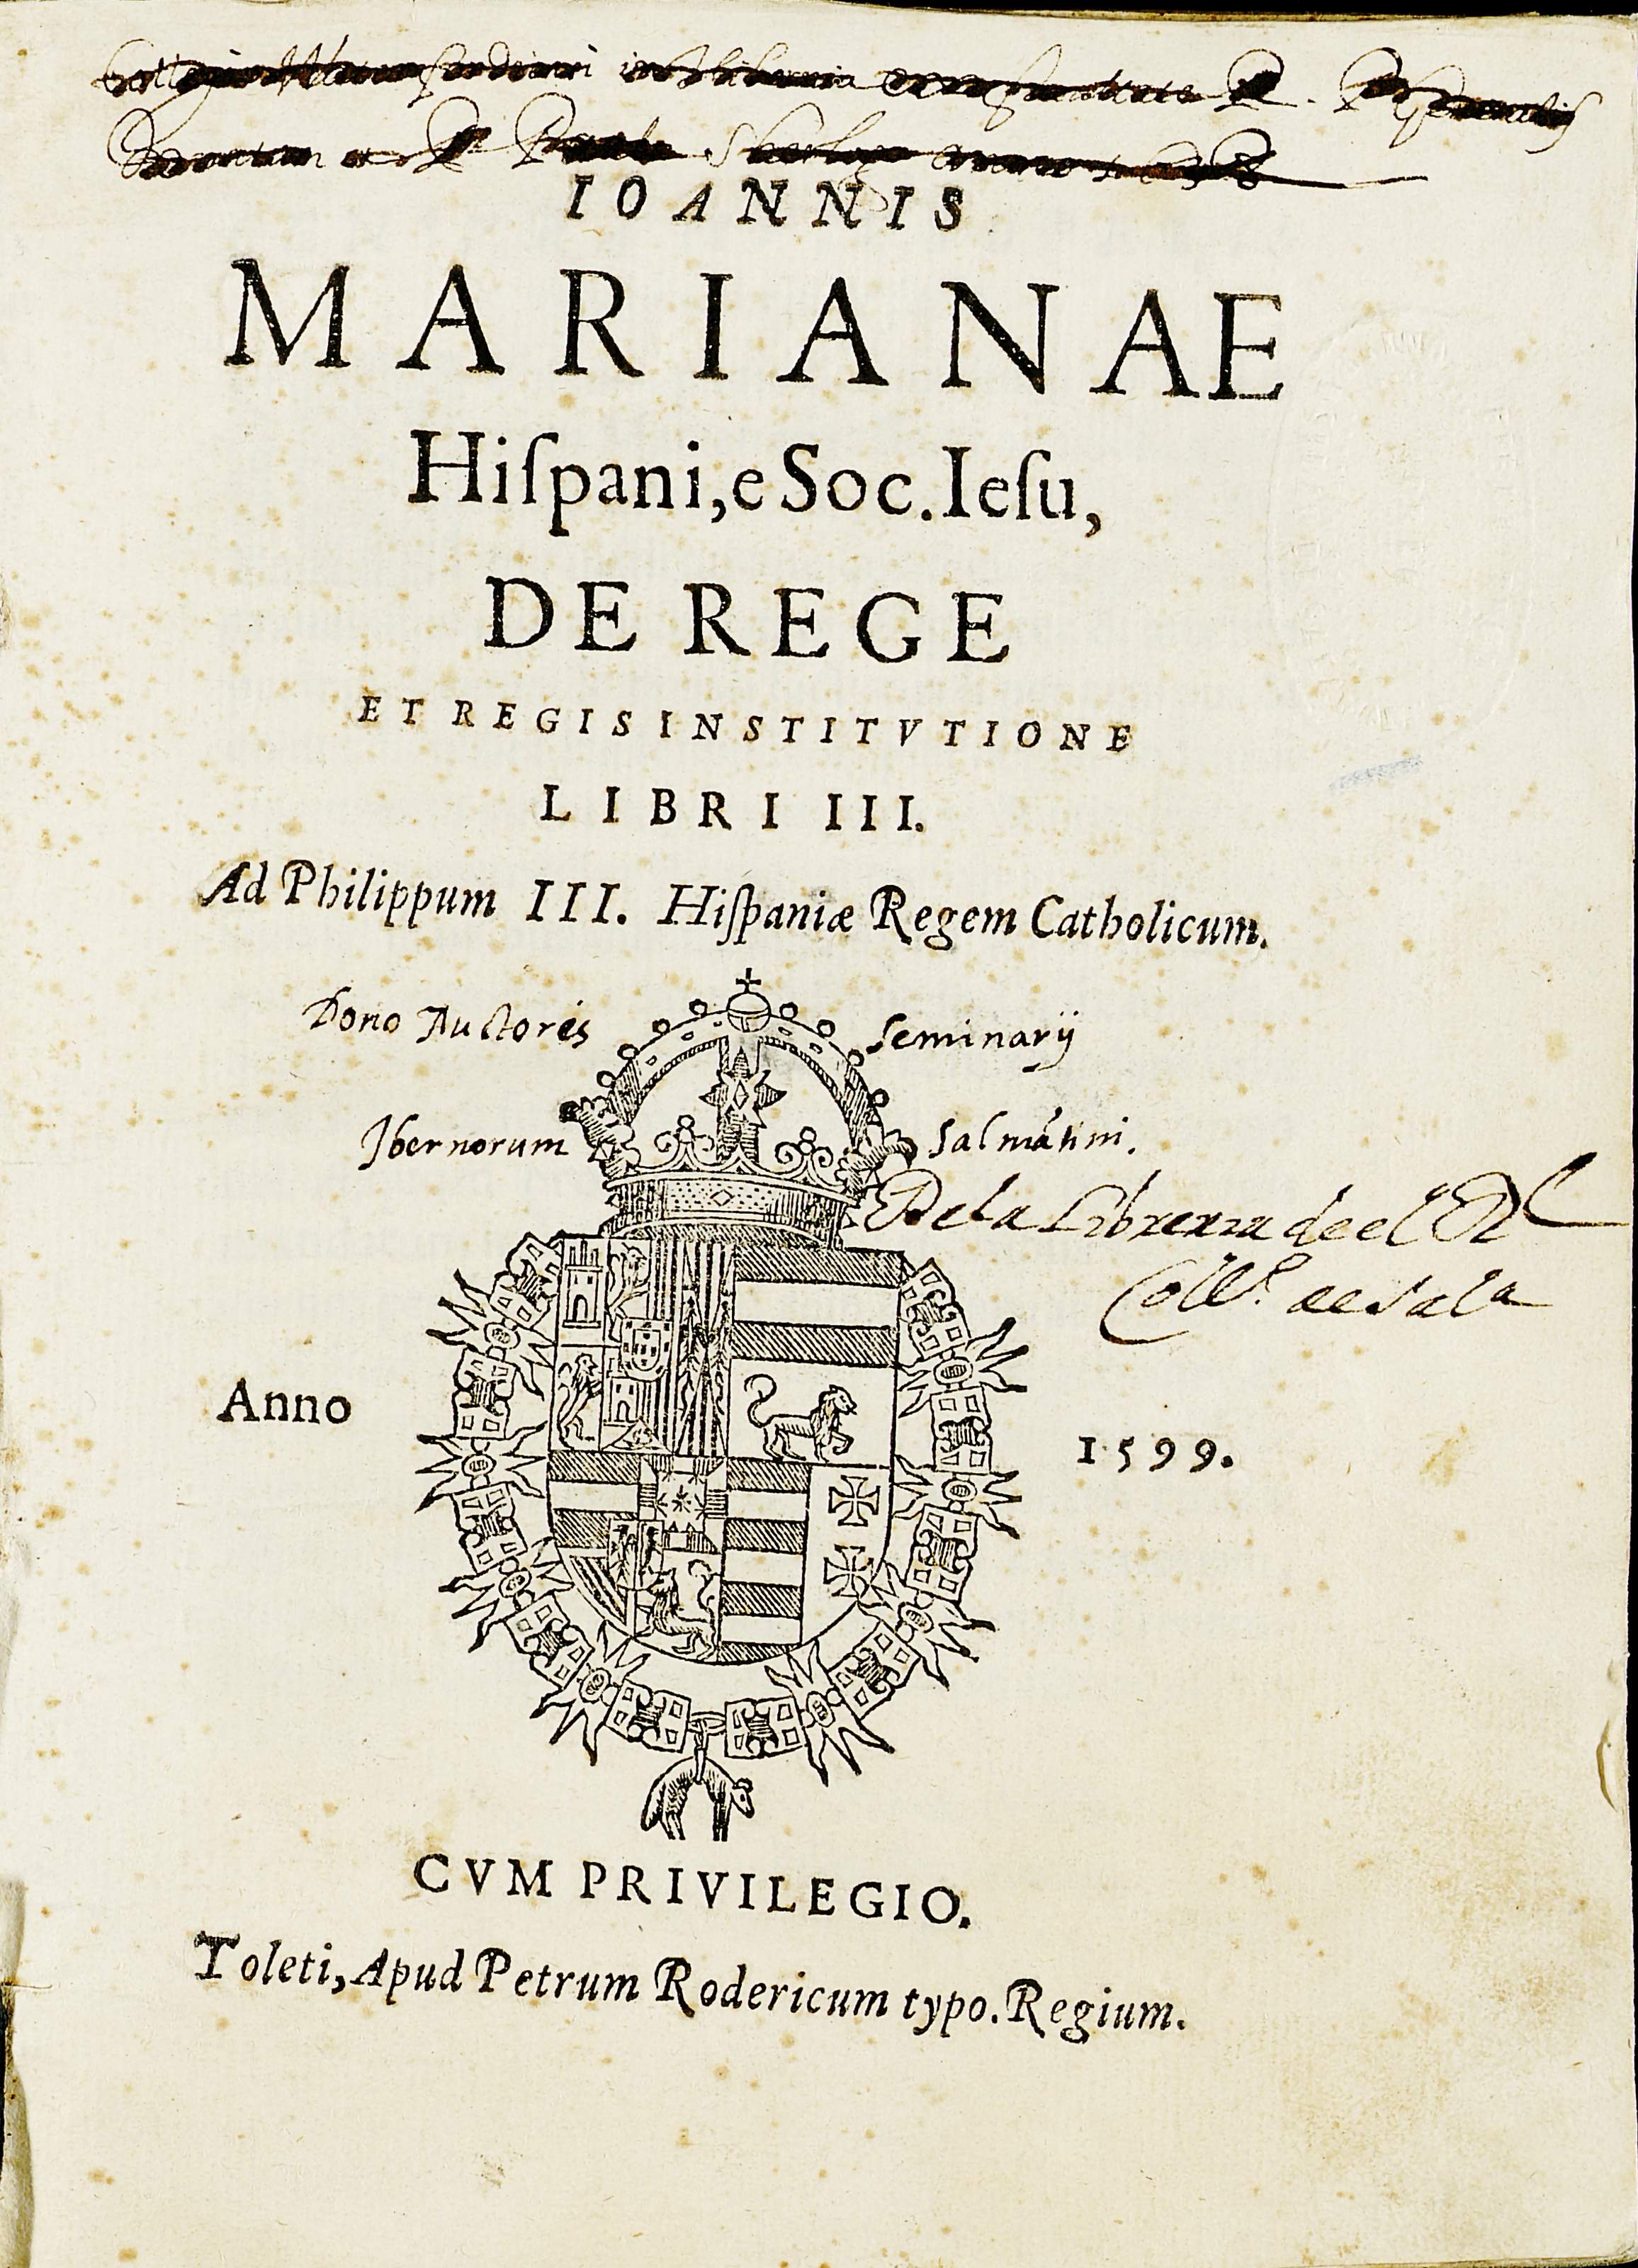 in Hibernia
et P. Paulo Sherlogo anno
IOANNIS
MARIANAE
Hiſpani, e Soc. Ieſu,
DE REGE
ET REGIS INSTITVTIONE
LIBRI III.
Ad Philippum III. Hiſpaniæ Regem Catholicum.
Dono Auctoris Seminarij
Ibernorum Salmãtini.
De la Libreria de el Rl
Collo. de Sala
Anno 1599.
CVM PRIVILEGIO.
Toleti, Apud Petrum Rodericum typo. Regium.